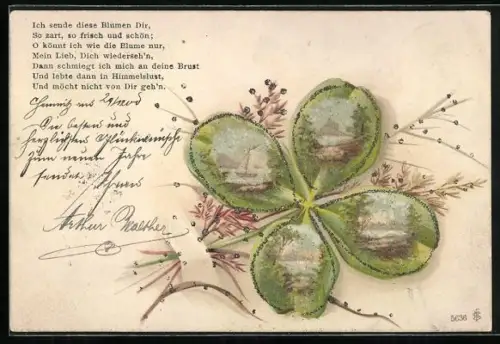 Ich sende diese Blumen Dir,
So zart, so frisch und schön;
O könnt ich wie die Blume nur,
Mein Lieb, Dich wiederseh'n,
Dann schmiegt ich mich an deine Brust
Und lebte dann in Himmelslust,
Und möcht nicht von Dir geh'n.
Chemnitz
Die besten und
herzlichsten Glückwünsche
zum neuen Jahre
sendet Ihnen
Arthur Walther
5236